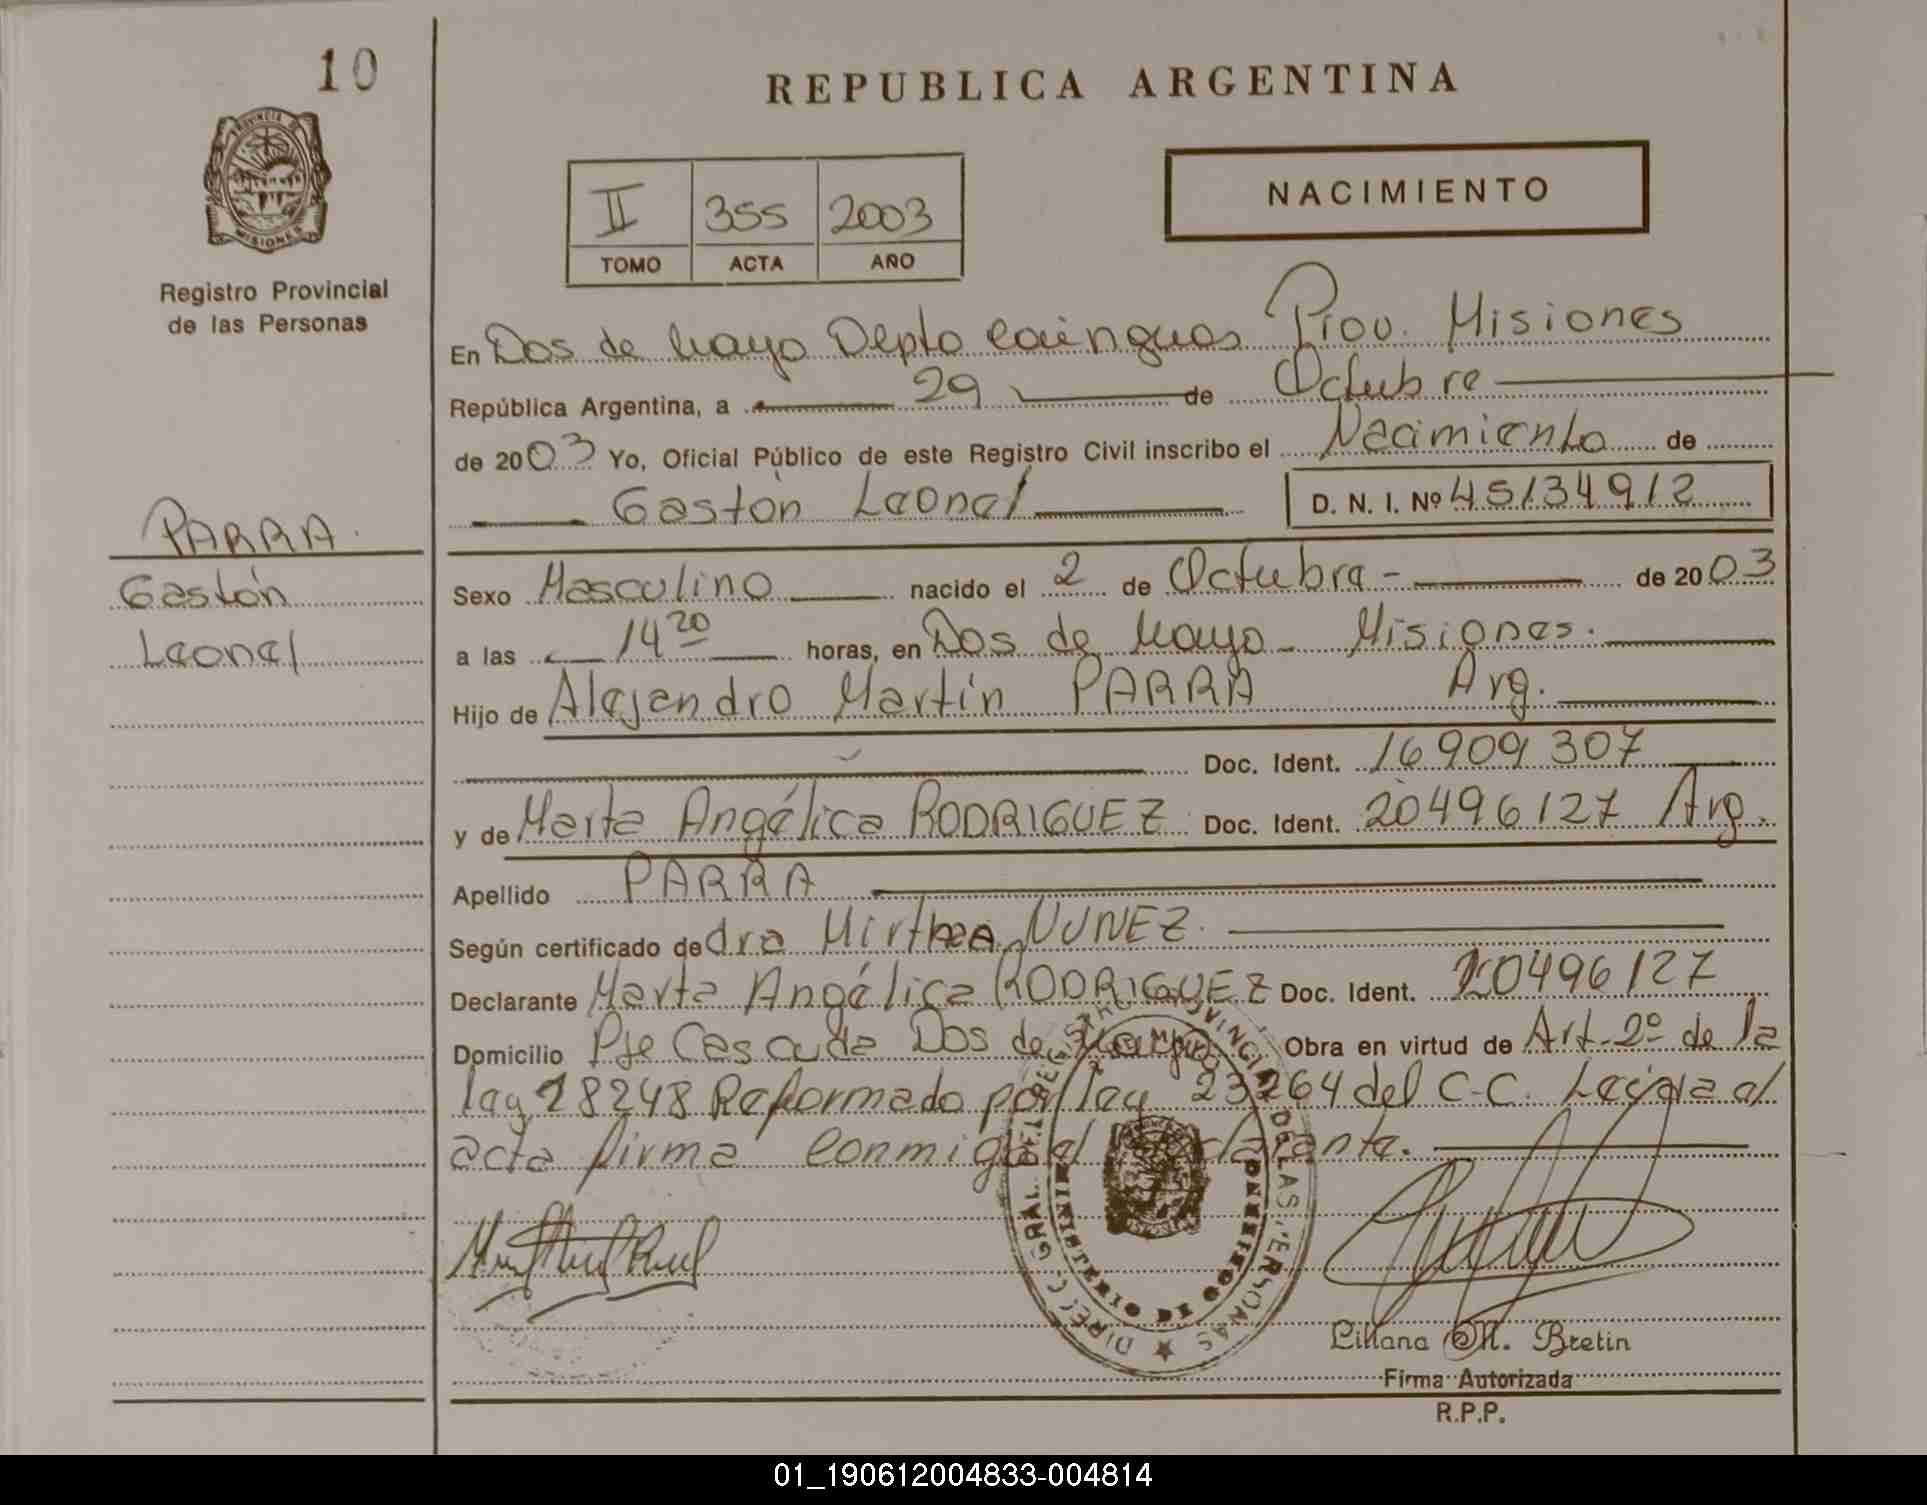 10
REPUBLICA ARGENTINA
PROVINCIA DE
MISIONES
Registro Provincial
de las Personas
II 355 2003
TOMO ACTA AÑO
NACIMIENTO
En Dos de Mayo Depto Cainguas Prov. Misiones
República Argentina, a 29 de Octubre
de 2003 Yo, Oficial Público de este Registro Civil inscribo el Nacimiento de
Gastón Leonel D. N. I. Nº 45134912
PARRA.
Gastón
Leonel
Sexo Masculino nacido el 2 de Octubre - de 2003
a las 14 20 horas, en Dos de Mayo - Misiones.
Hijo de Alejandro Martín PARRA Arg.
Doc. Ident. 16909307
y de Marta Angélica RODRIGUEZ Doc. Ident. 20496127 Arg.
Apellido PARRA
Según certificado de dra Mirthea NUNEZ.
Declarante Marta Angélica RODRIGUEZ Doc. Ident. 20496127
Domicilio Pje Cascada Dos de Mayo Obra en virtud de Art-2º de la
ley 18248 Reformado por ley 23264 del C-C. Leída el
acta firma conmigo el declarante.
DIREC. GRAL. DEL REGISTRO PROVINCIAL DE LAS PERSONAS
MINISTERIO DE GOBIERNO
Liliana M. Bretin
Firma Autorizada
R.P.P.
01_190612004833-004814